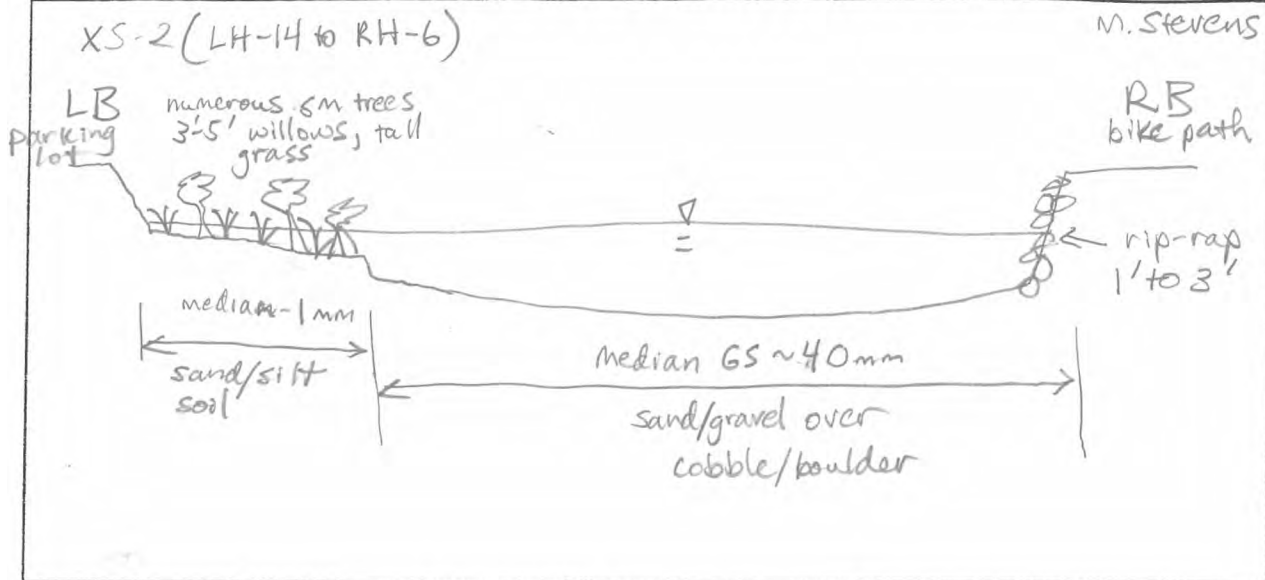 XS-2 (LH-14 to RH-6)
M. Stevens
LB
parking
lot
numerous sm trees
3'-5' willows, tall
grass
RB
bike path
rip-rap
1' to 3'
median-1mm
sand/silt
soil
median GS ~40mm
sand/gravel over
cobble/boulder